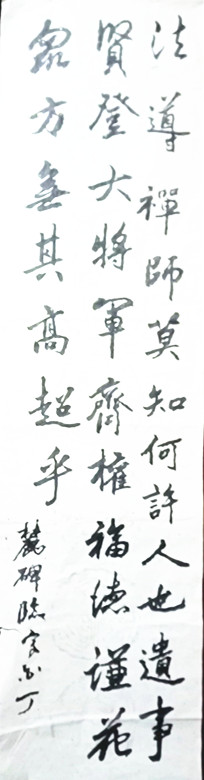 法導禪師莫知何許人也遺事
賢登大將軍齊權福德謹花
眾方無其高超乎
麓碑臨